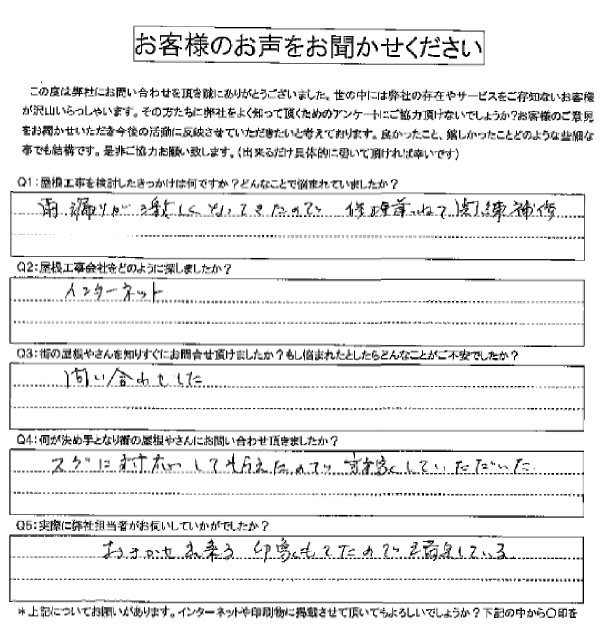 お客様のお声をお聞かせください
この度は弊社にお問い合わせを頂き誠にありがとうございました。世の中には弊社の存在やサービスをご存知ないお客様
が沢山いらっしゃいます。その方たちに弊社をよく知って頂くためのアンケートにご協力頂けないでしょうか?お客様のご意見
をお聞かせいただき今後の活動に反映させていただきたいと考えております。良かったこと、嬉しかったことどのような些細な
事でも結構です。是非ご協力お願い致します。(出来るだけ具体的に書いて頂ければ幸いです)
Q1:屋根工事を検討したきっかけは何ですか?どんなことで悩まれていましたか?
雨漏りが激しくなってきたので 修理
Q2:屋根工事会社をどのように探しましたか?
インターネット
Q3:街の屋根やさんを知りすぐにお問合せ頂けましたか?もし悩まれたとしたらどんなことがご不安でしたか?
問い合わせした
Q4:何が決め手となり街の屋根やさんにお問い合わせ頂きましたか?
スグに対応して貰えたので していただいた
Q5:実際に弊社担当者がお伺いしていかがでしたか?
おまかせ出来る 印象もてたので している
*上記についてお願いがあります。インターネットや印刷物に掲載させて頂いてもよろしいでしょうか?下記の中から〇印を